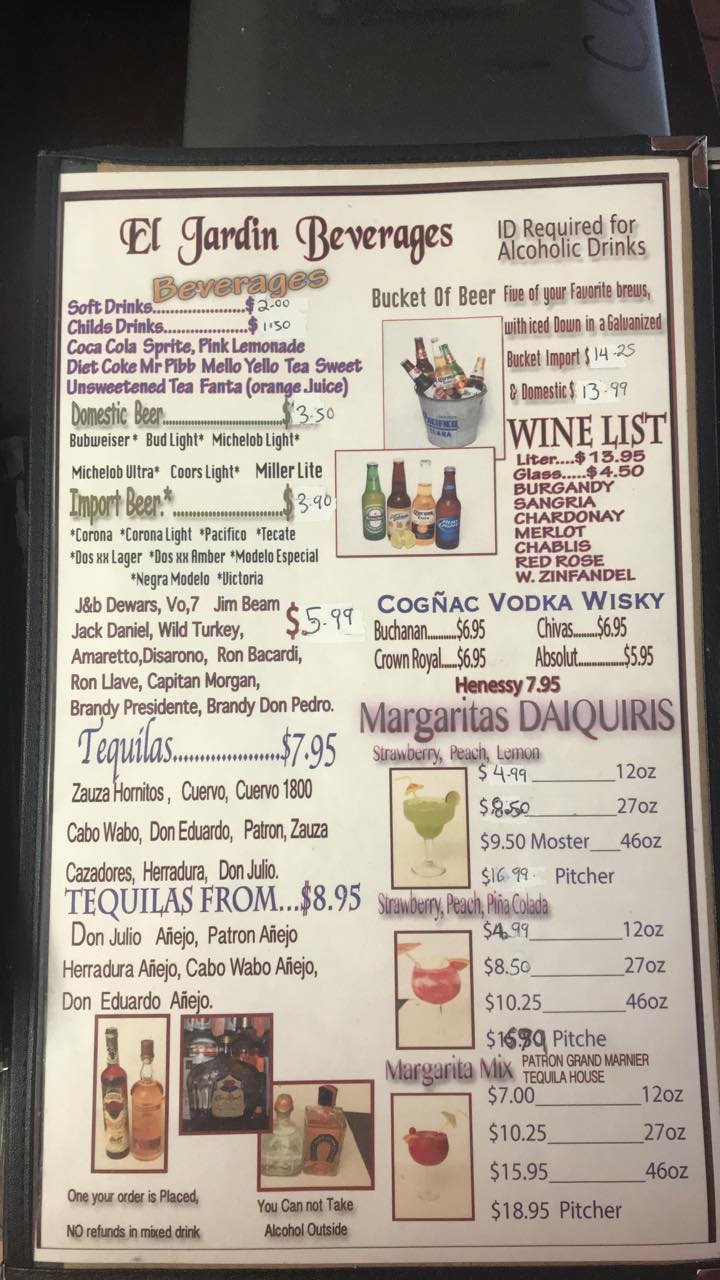 El Jardin Beverages
ID Required for
Alcoholic Drinks
Beverages
Soft Drinks......................$ 2.00
Childs Drinks..................$ 1.50
Coca Cola Sprite, Pink Lemonade
Diet Coke Mr Pibb Mello Yello Tea Sweet
Unsweetened Tea Fanta (orange Juice)
Domestic Beer..........................$ 3.50
Bubweiser* Bud Light* Michelob Light*
Michelob Ultra* Coors Light* Miller Lite
Import Beer.*..........................$ 3.90
*Corona *Corona Light *Pacifico *Tecate
*Dos xx Lager *Dos xx Amber *Modelo Especial
*Negra Modelo *Victoria
J&b Dewars, Vo,7 Jim Beam
$5.99
Jack Daniel, Wild Turkey,
Amaretto,Disarono, Ron Bacardi,
Ron Llave, Capitan Morgan,
Brandy Presidente, Brandy Don Pedro.
Tequilas.....................$7.95
Zauza Hornitos , Cuervo, Cuervo 1800
Cabo Wabo, Don Eduardo, Patron, Zauza
Cazadores, Herradura, Don Julio.
TEQUILAS FROM...$8.95
Don Julio Añejo, Patron Añejo
Herradura Añejo, Cabo Wabo Añejo,
Don Eduardo Añejo.
One your order is Placed,
NO refunds in mixed drink
You Can not Take
Alcohol Outside
Bucket Of Beer
Five of your Favorite brews,
with iced Down in a Galvanized
Bucket Import $ 14.25
& Domestic $ 13.99
PACIFICO
CLARA
Corona
WINE LIST
Liter....$ 13.95
Glass.....$ 4.50
BURGANDY
SANGRIA
CHARDONAY
MERLOT
CHABLIS
RED ROSE
W. ZINFANDEL
COGÑAC VODKA WISKY
Buchanan..........$6.95 Chivas........$6.95
Crown Royal.....$6.95 Absolut...............$5.95
Henessy 7.95
Margaritas DAIQUIRIS
Strawberry, Peach, Lemon
$ 4.99_________12oz
$8.50_________27oz
$9.50 Moster___46oz
$16.99 Pitcher
Strawberry, Peach, Piña Colada
$4.99_________12oz
$8.50_________27oz
$10.25________46oz
Pitche
Margarita Mix PATRON GRAND MARNIER
TEQUILA HOUSE
$7.00__________12oz
$10.25_________27oz
$15.95_________46oz
$18.95 Pitcher